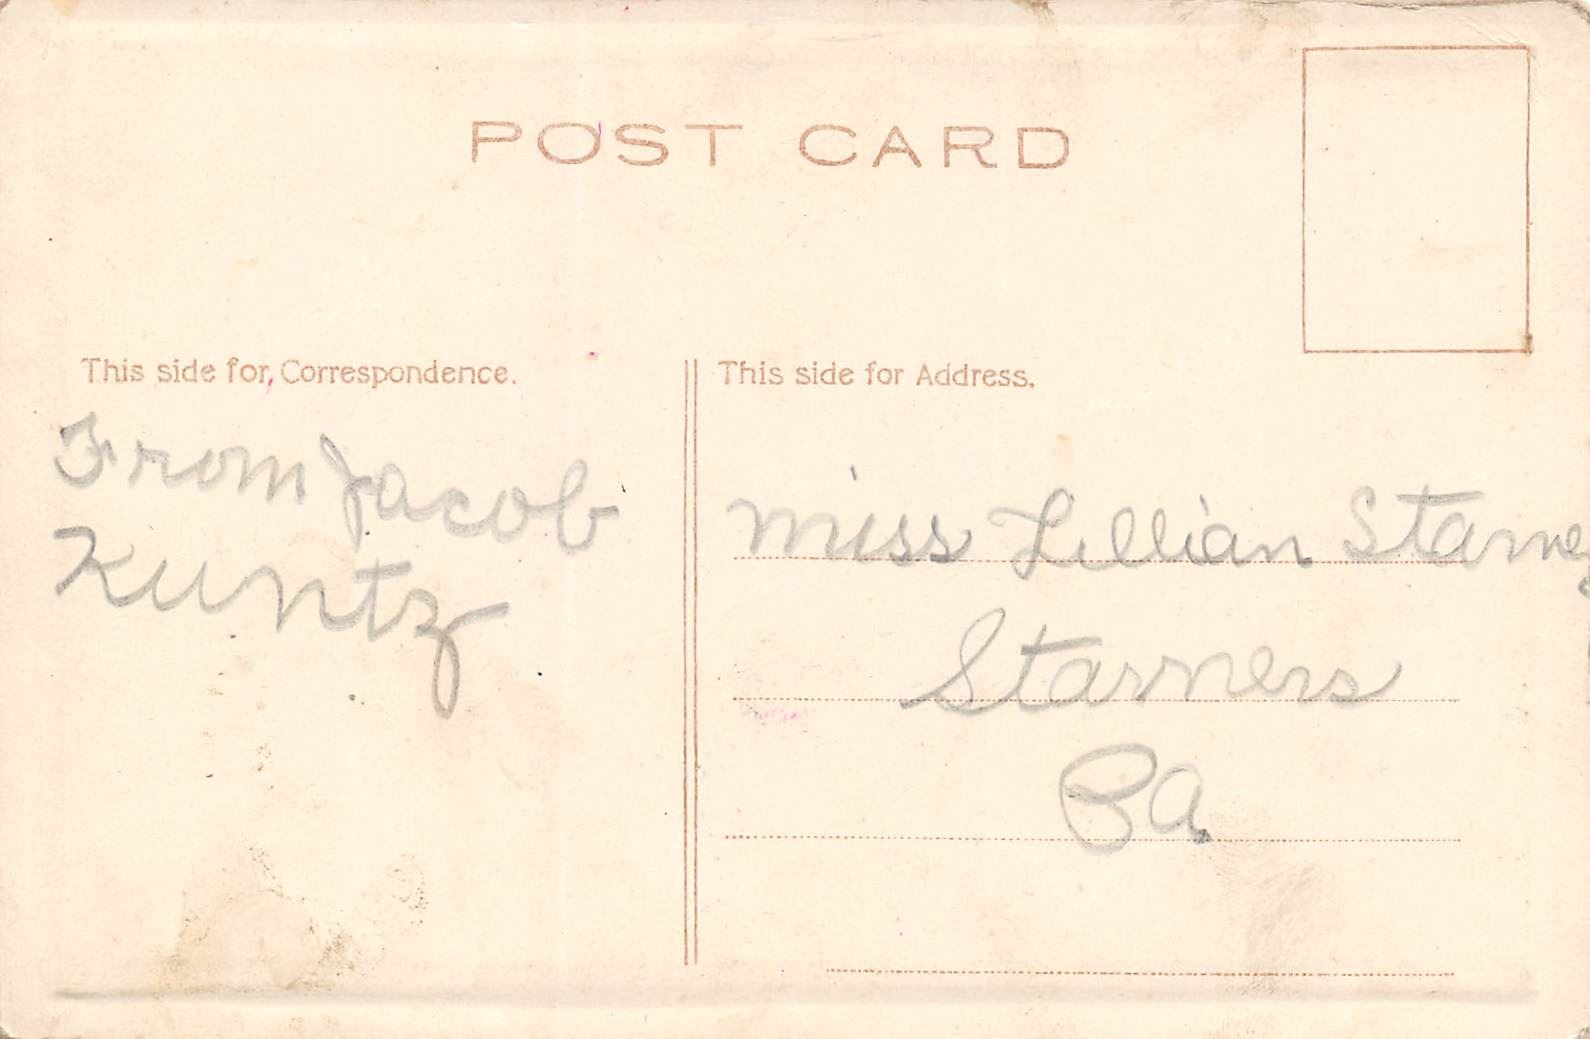 POST CARD
This side for Correspondence.
This side for Address.
From Jacob
Kuntz
Miss Lillian Starner
Starners
Pa.